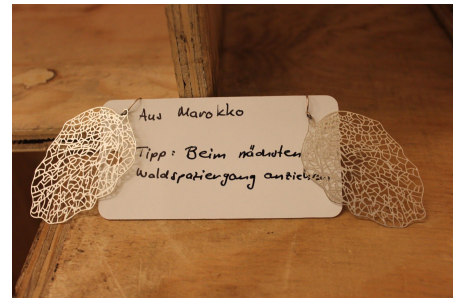 Aus Marokko
Tipp: Beim nächsten
Waldspaziergang anziehen